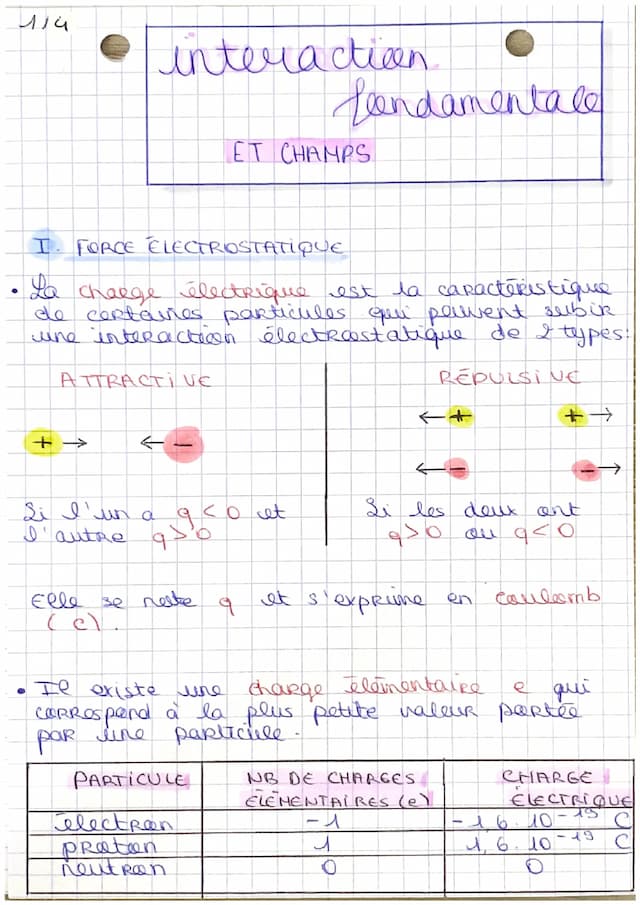 1/4
interaction
fondamentale
ET CHAMPS
I. FORCE ÉLECTROSTATIQUE
• La charge électrique est la caractéristique
de certaines particules qui peuvent subir
une interaction électrostatique de 2 types:
ATTRACTIVE
+ → ← -
Si l'un a q < 0 et
l'autre q > 0
RÉPULSIVE
← + + →
← - - →
Si les deux ont
q > 0 ou q < 0
Elle se note q et s'exprime en coulomb
(C).
• Il existe une charge élémentaire e qui
correspond à la plus petite valeur portée
par une particule.
PARTICULE NB DE CHARGES ÉLÉMENTAIRES (e) CHARGE ÉLECTRIQUE
électron -1 -1,6.10⁻¹⁹ C
proton 1 1,6.10⁻¹⁹ C
neutron 0 0